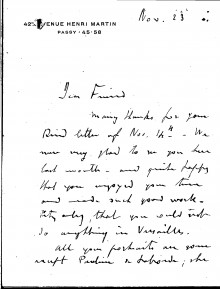 42 AVENUE HENRI MARTIN
PASSY : 45-58
Nov. 23
Dear Friend
Many thanks for your
kind letter of Nov. 14th - We
were very glad to see you here
last month - and quite happy
that you enjoyed your time
and made such good work -
pity only that you could not
do anything in Versailles.
All your portraits are gone
except Pauline de Laborde, she